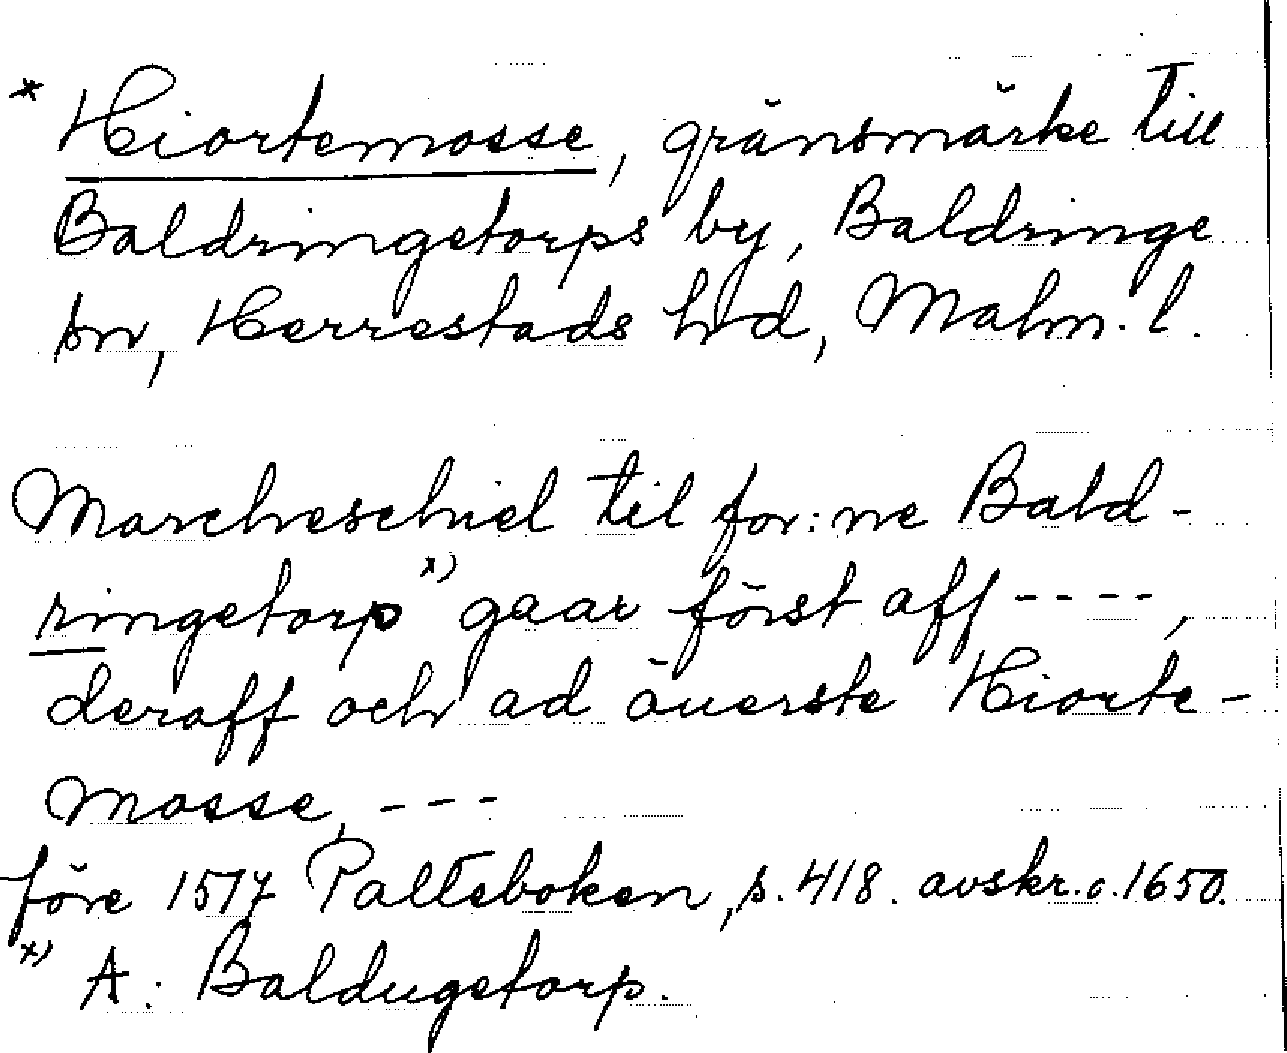 * Hiortemosse, gränsmärke till
Baldringetorps by, Baldringe
sn, Herrestads hd, Malm. l.
Marcheschiel til for:ne Bald-
ringetorp x) gaar först aff ----,
deraff och ad äuerste Hiorte-
Mosse, ---
före 1517 Palteboken, s. 418. avskr. c. 1650.
x) A: Baldugetorp.